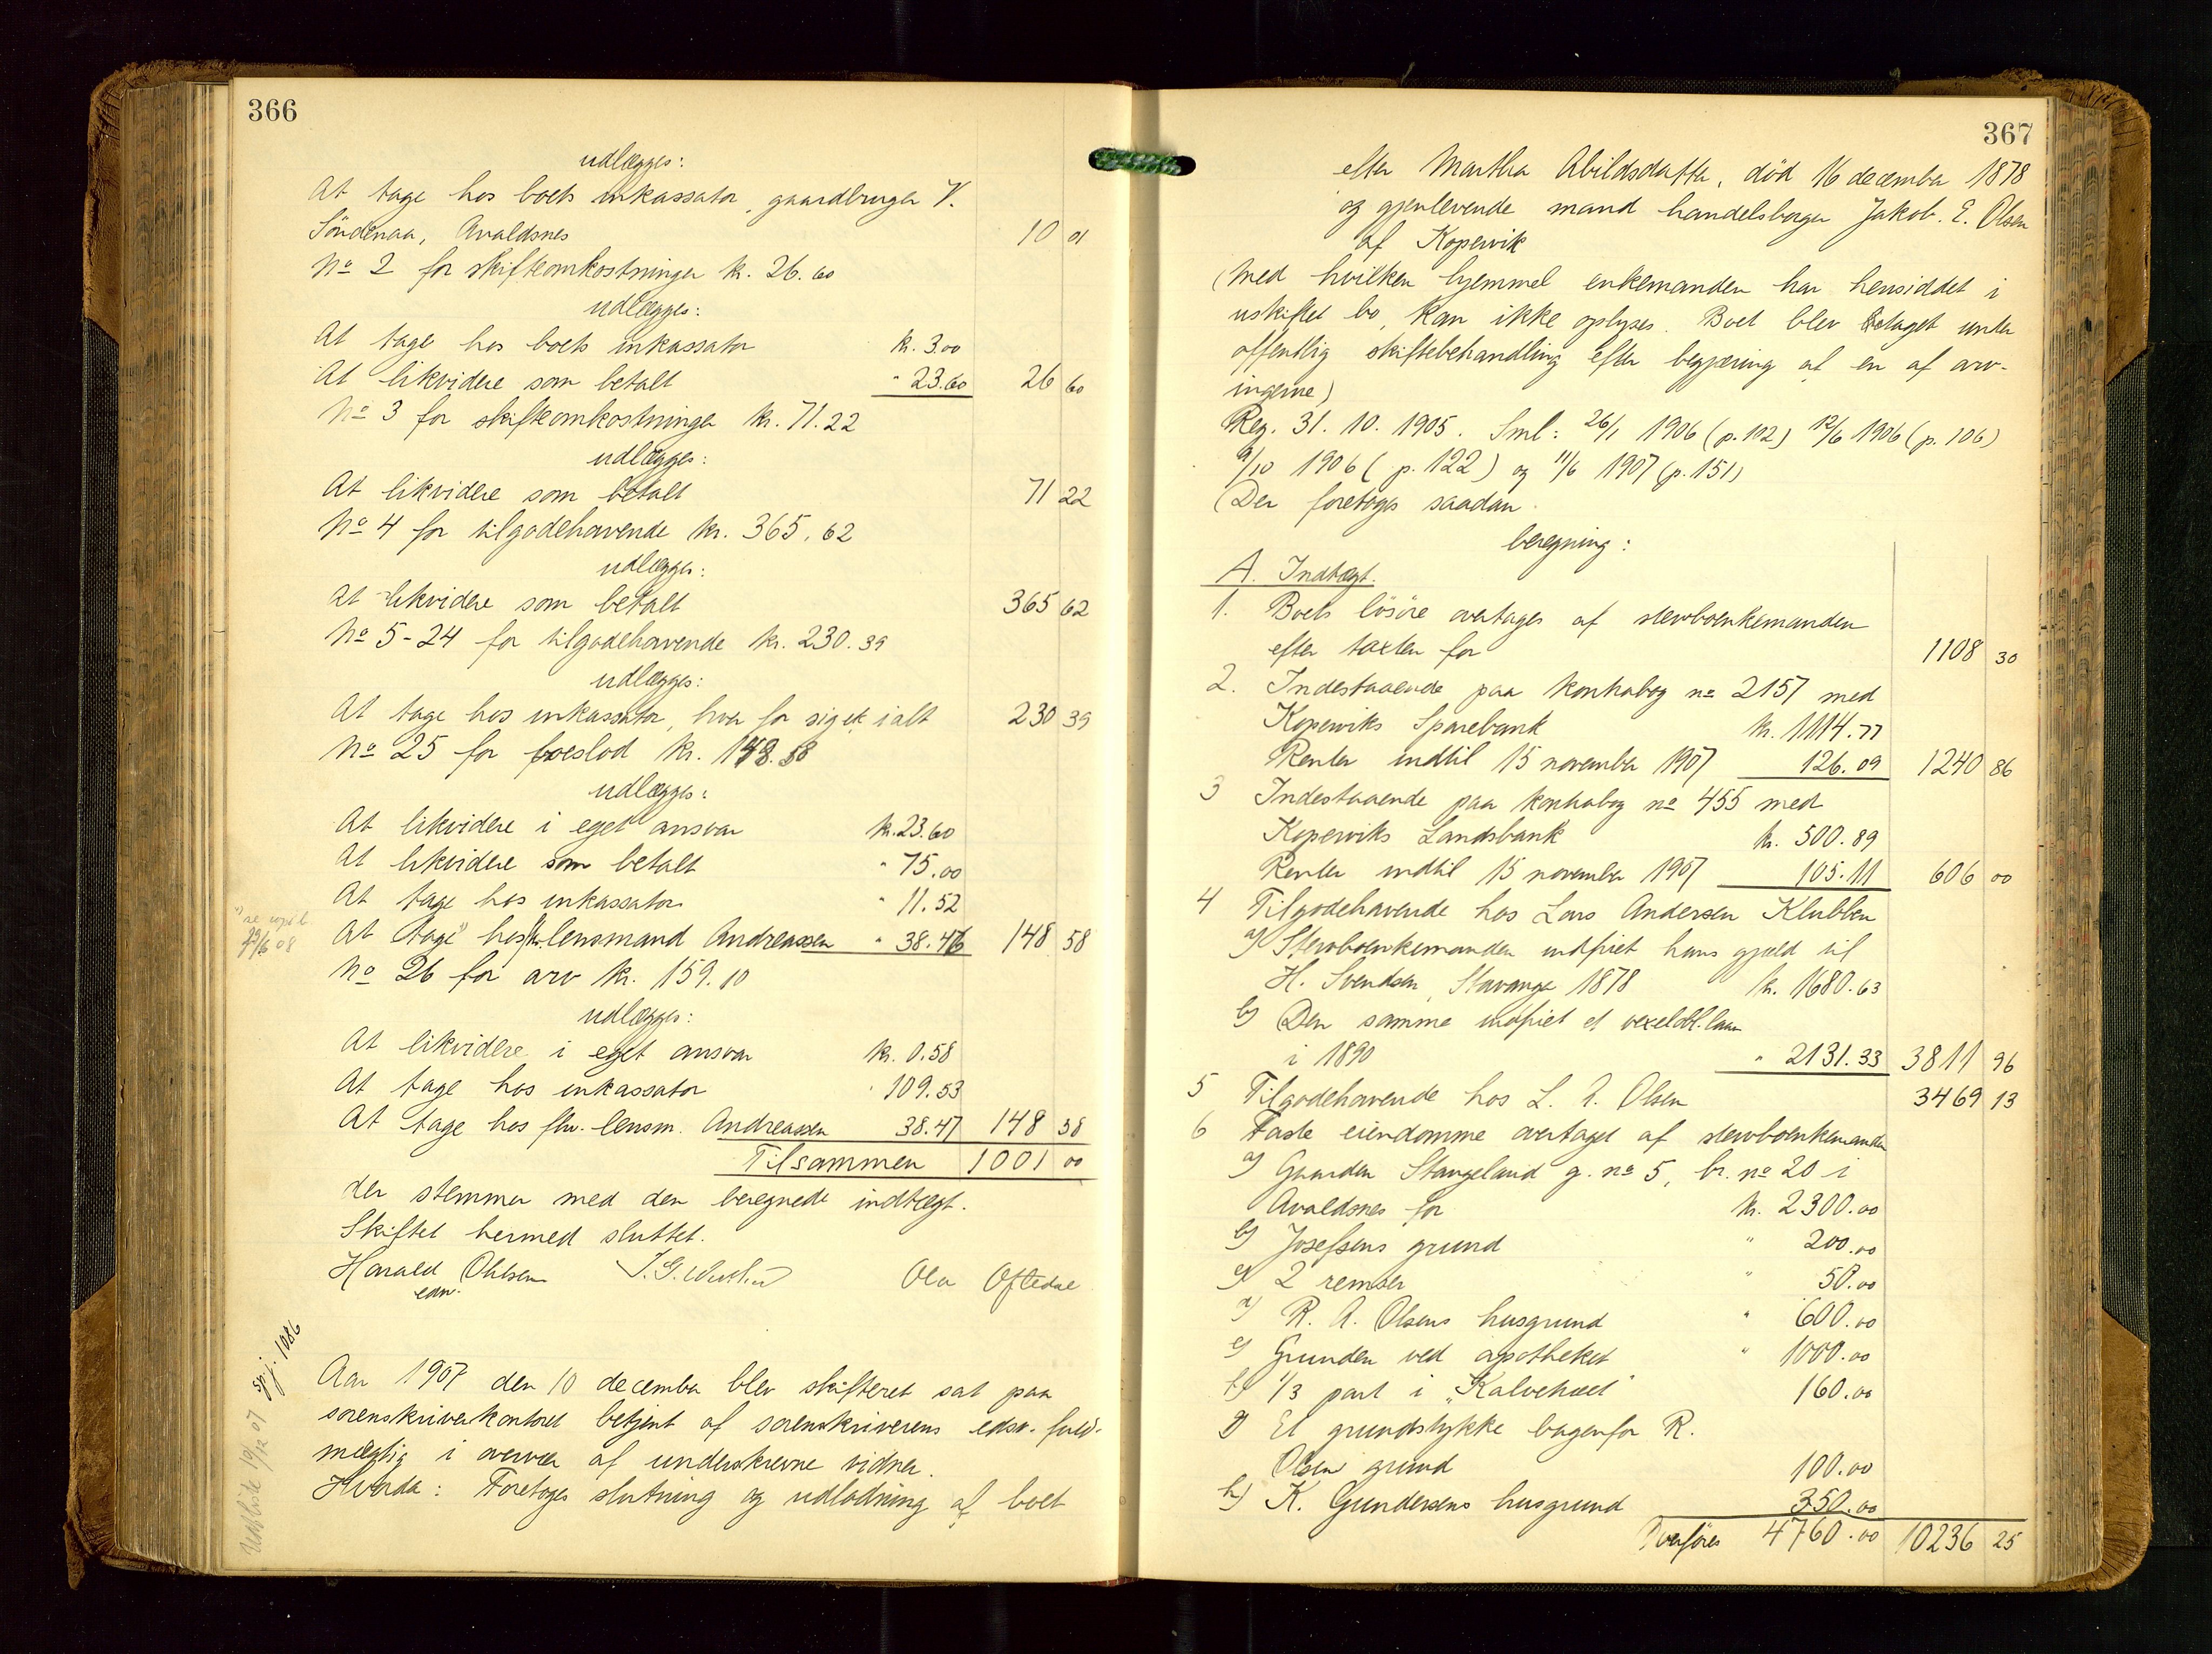 366
udlægges:
At tage hos boets inkassator, gaardbruger V.
Söndenaa, Avaldsnes 10 01
No 2 for skifteomkostninger kr. 26.60
udlægges:
At tage hos boets inkassator kr. 3.00
At likvidere som betalt " 23.60 26 60
No 3 for skifteomkostninger kr. 71.22
udlægges:
At likvidere som betalt 71 22
No 4 for tilgodehavende kr. 365.62
udlægges:
At likvidere som betalt 365 62
No 5-24 for tilgodehavende kr. 230.39
udlægges:
At tage hos inkassator, hver for sig ialt 230 39
No 25 for boeslod kr. 148.58
udlægges:
At likvidere i eget ansvar kr. 23.60
At likvidere som betalt " 75.00
At tage hos inkassator " 11.52
At tage hos lensmand Andreassen " 38.46 148 58
No 26 for arv kr. 159.10
udlægges:
At likvidere i eget ansvar kr. 0.58
At tage hos inkassator " 109.53
At tage hos fhv. lensm. Andreassen 38.47 148 58
Tilsammen 1001 00
der stemmer med den beregnede indtægt.
Skiftet hermed sluttet.
Harald Ohlsen Ola Oftedal
edsv.
spj. 1086
Aar 1907 den 10 december blev skifteret sat paa
sorenskriverkontoret betjent af sorenskriverens edsv. fuld-
mægtig i overvær af underskrevne vidner.
Hvorda: Foretoges slutning og udlodning af boet
367
efter Martha Abildsdatter, död 16 december 1878
og gjenlevende mand handelsborger Jakob. E. Olsen
af Kopervik
(Med hvilken hjemmel enkemanden har hensiddet i
uskiftet bo, kan ikke oplyses. Boet blev betaget under
offentlig skiftebehandling efter begjæring af en af arv-
ingerne)
Reg. 31. 10. 1905. Sml: 26/1 1906 (p. 102) 12/6 1906 (p. 106)
9/10 1906 (p. 122) og 11/6 1907 (p. 151)
(Der foretoges saadan
beregning:
A. Indtægt.
1. Boets lösöre overtages af stervboenkemanden
efter taxten for 1108 30
2. Indestaaende paa kontrabog no 2157 med
Koperviks Sparebank kr. 1114.77
Renter indtil 15 november 1907 126.09 1240 86
3 Indestaaende paa kontrabog no 455 med
Koperviks Landsbank kr. 500.89
Renter indtil 15 november 1907 105.11 606 00
4 Tilgodehavende hos Lars Andersen Klubben
a) Stervboenkemanden indfriet hans gjæld til
H. Svendsen, Stavanger 1878 kr. 1680.63
b) Den samme indfriet et vexelobl. laan
i 1890 " 2131.33 3811 96
5 Tilgodehavende hos L. A. Olsen 3469 13
6 Faste eiendomme overtaget af stervboenkemanden
a) Gaarden Stangeland g. no 5, br. no 20 i
Avaldsnes for kr. 2300.00
b) Josefsens grund " 200.00
c) 2 remser " 50.00
d) R. A. Olsens husgrund " 600.00
e) Grunden ved apotheket " 1000.00
f) 1/3 part i "Kalvehaet" 160.00
g) Et grundstykke bagenfor R.
Olsens grund 100.00
h) K. Gundersens husgrund 350.00
Overföres 4760.00 10236 25